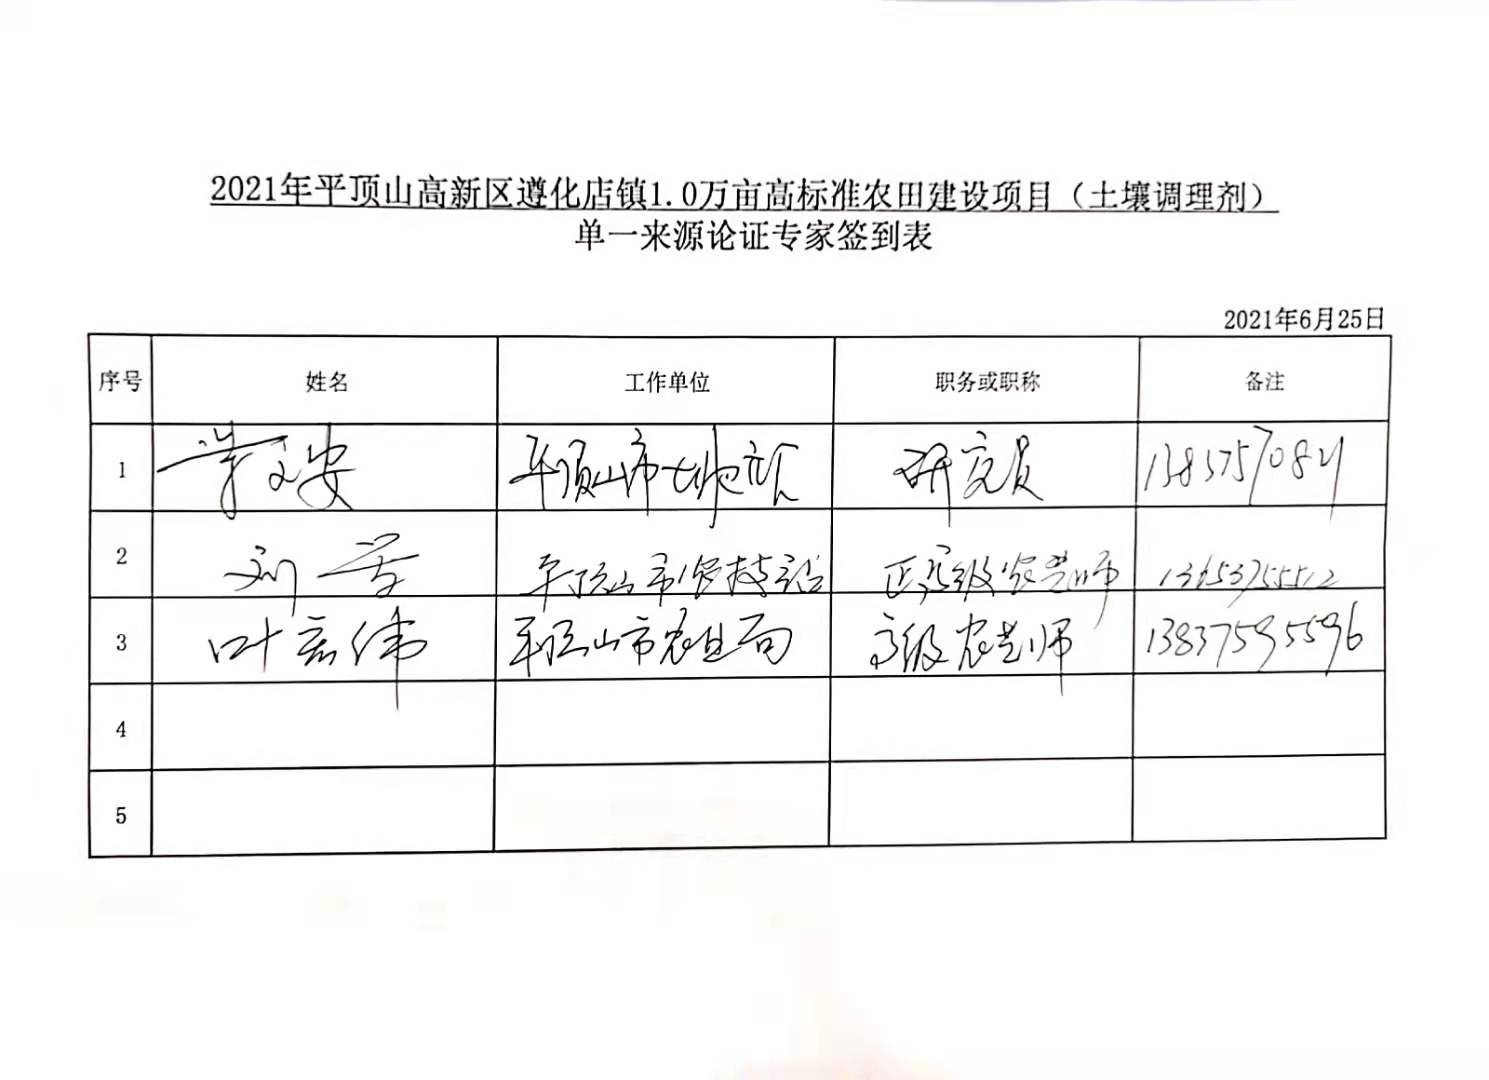 2021年平顶山高新区遵化店镇1.0万亩高标准农田建设项目（土壤调理剂）
单一来源论证专家签到表
2021年6月25日
序号 姓名 工作单位 职务或职称 备注
1 文安 平顶山市 研究员
2 刘 平顶山市农技站 正高级农艺师 13653755512
3 叶宏伟 平顶山市农业局 高级农艺师 13837595596
4
5